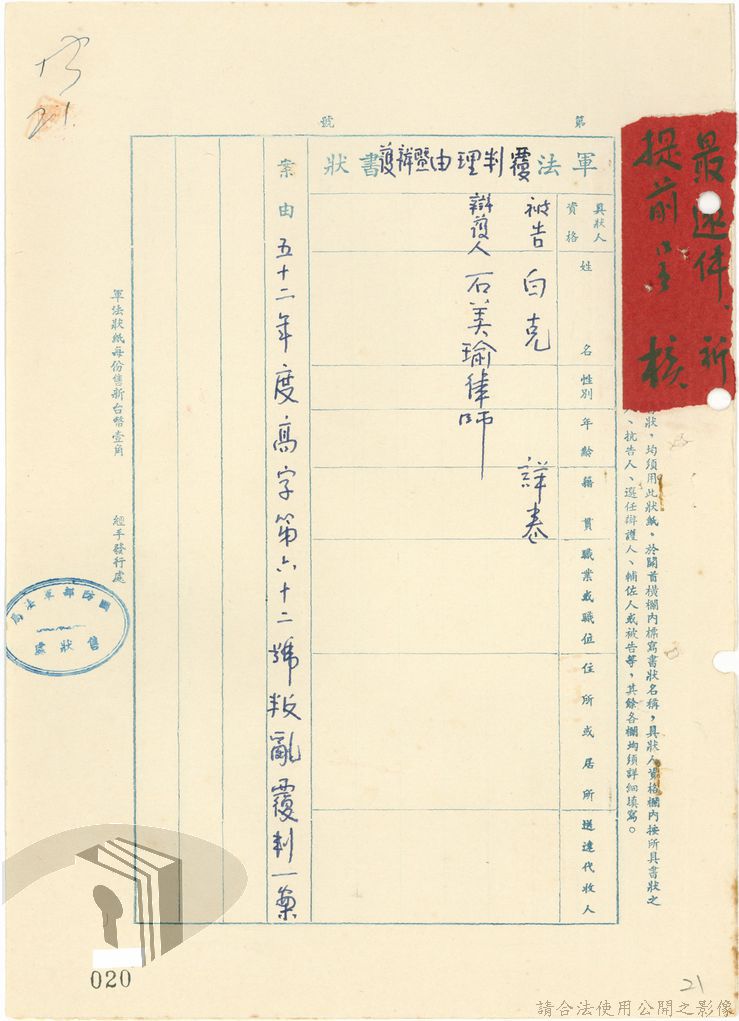 最速件、祈
提前呈核
書狀，均須用此狀紙。於關首橫欄內標寫書狀名稱，具狀人資格欄內按所具書狀之
、抗告人、選任辯護人、輔佐人或被告等，其餘各欄均須詳細填寫。
第 號
軍法覆判理由暨辯護書狀
具狀人資格
姓名
性別
年齡
籍貫
職業或職位
住所或居所
送達代收人
被告 白克 詳卷
辯護人 石美瑜律師
案由 五十二年度高字第六十二號叛亂覆判一案
軍法狀紙每份售新台幣壹角 經手發行處
國防部軍法局
售狀處
020
21
請合法使用公開之影像